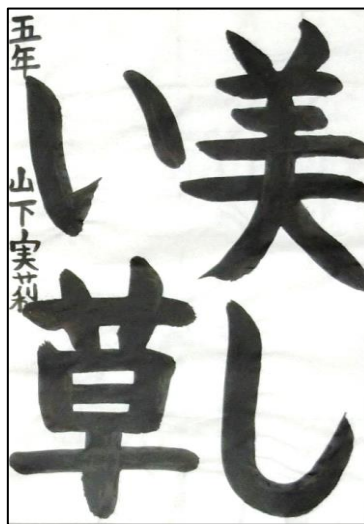 美し
い草
五年 山下実莉